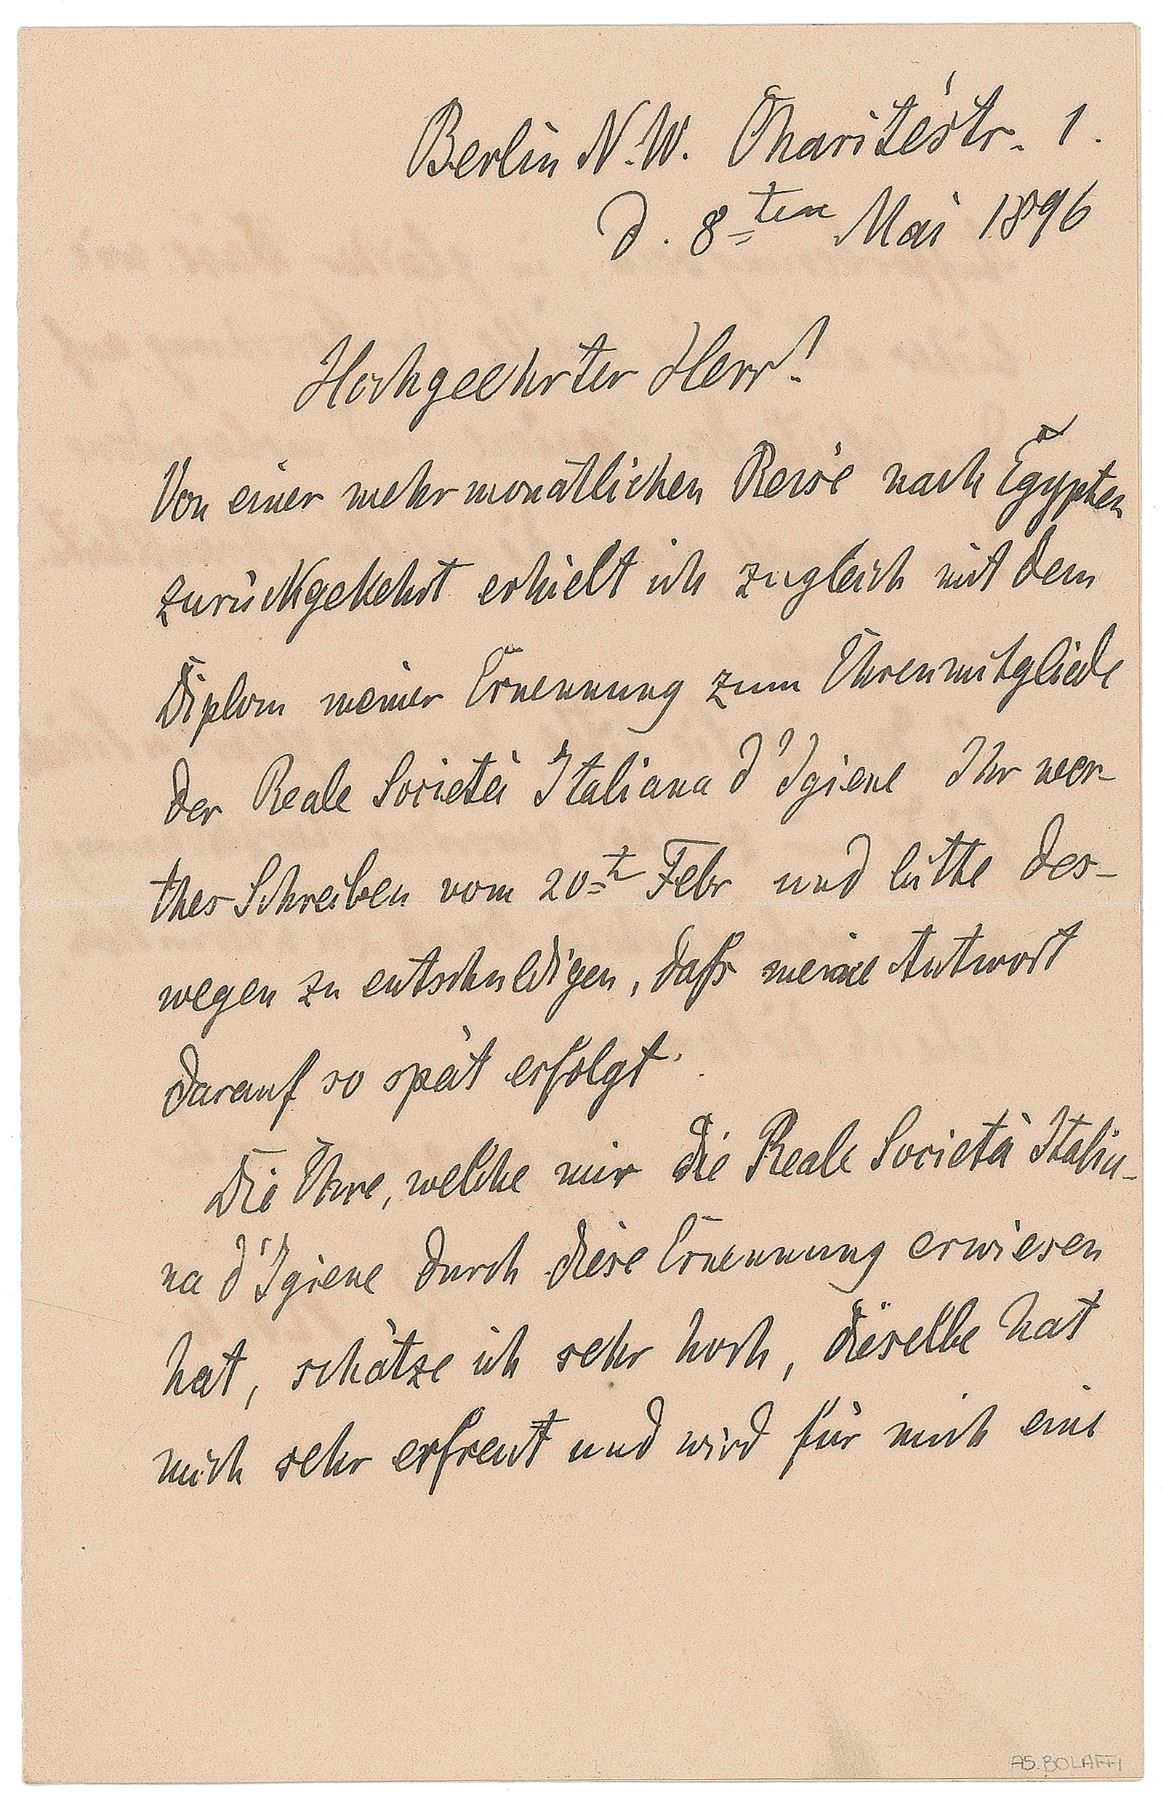 Berlin N.W. Charitéstr. 1.
d. 8ten Mai 1896
Hochgeehrter Herr!
Von einer mehrmonatlichen Reise nach Egypten
zurückgekehrt erhielt ich zugleich mit dem
Diplom meiner Ernennung zum Ehrenmitgliede
der Reale Società Italiana d'Igiene Ihr wer-
thes Schreiben vom 20t Febr und bitte des-
wegen zu entschuldigen, daß meine Antwort
darauf so spät erfolgt.
Die Ehre, welche mir die Reale Società Italia-
na d'Igiene durch diese Ernennung erwiesen
hat, schätze ich sehr hoch, dieselbe hat
mich sehr erfreut und wird für mich eine
AS. BOLAFFI